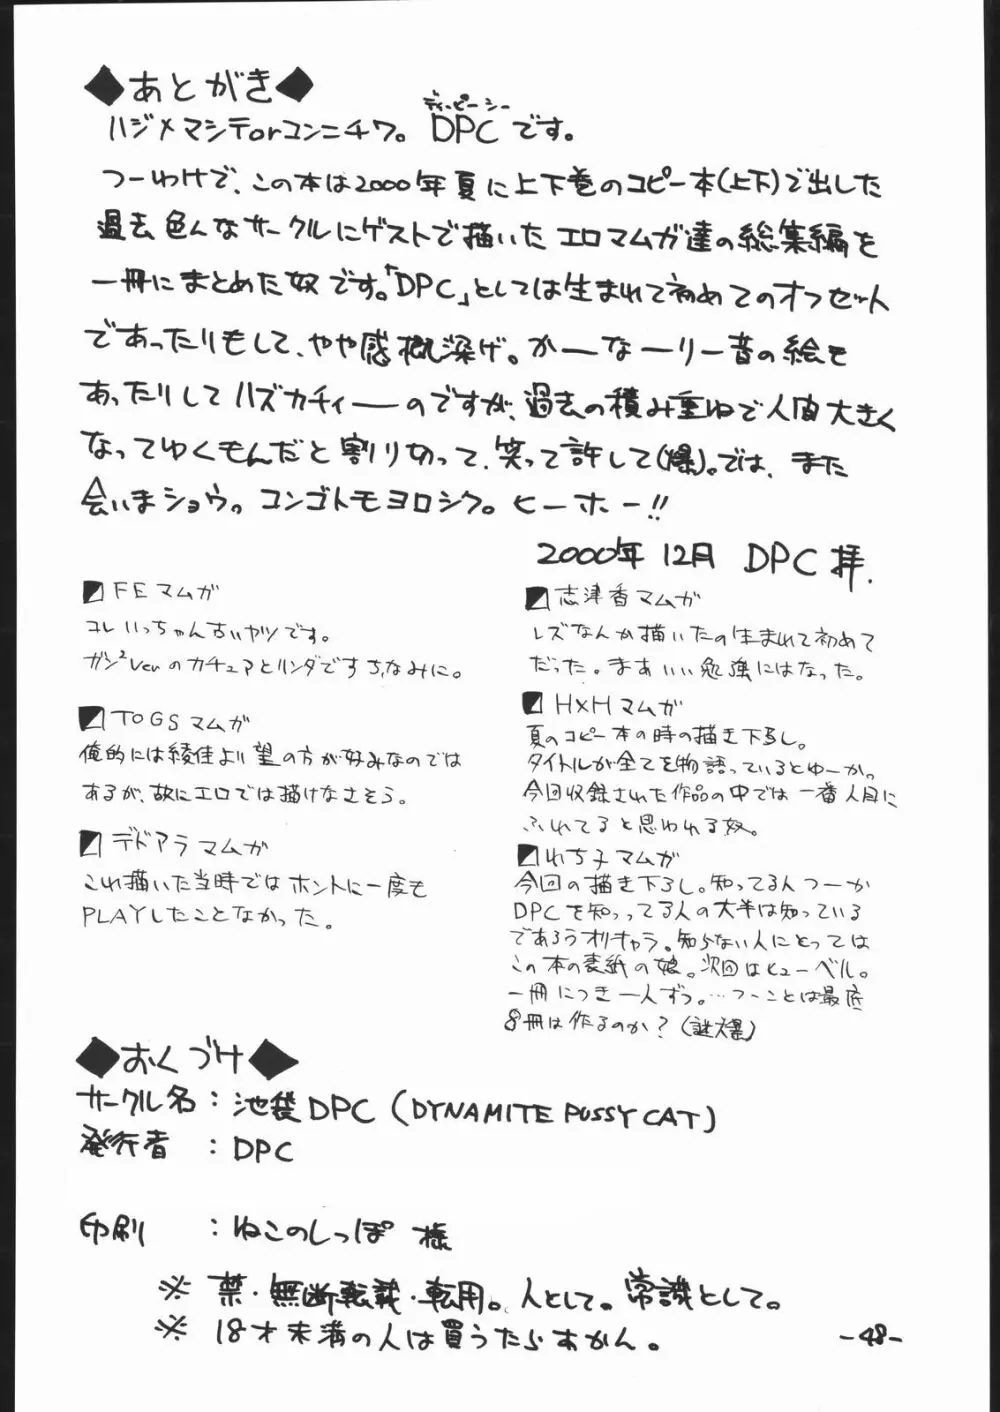 ◆あとがき◆
ディーピーシー
ハジメマシテorコンニチワ。DPCです。
つーわけで、この本は2000年夏に上下巻のコピー本(上下)で出した
過去色んなサークルにゲストで描いたエロマムガ達の総集編を
一冊にまとめた奴です。「DPC」としては生まれて初めてのオフセット
であったりもして、やや感慨深げ。かーなーりー昔の絵も
あったりしてハズカチィーのですが、過去の積み重ねで人間大きく
なってゆくもんだと割り切って、笑って許して(爆)。では、また
会いまショウ。コンゴトモヨロシク。ヒーホー!!
2000年12月 DPC拝.
FEマムガ
コレいっちゃん古いヤツです。
ガシ²Verのカチュアとリンダですちなみに。
TOGSマムガ
俺的には綾佳より望の方が好みなのでは
あるが、故にエロでは描けなさそう。
デドアラマムガ
これ描いた当時ではホントに一度も
PLAYしたことなかった。
志津香マムガ
レズなんか描いたの生まれて初めて
だった。まあいい勉強にはなった。
H×Hマムガ
夏のコピー本の時の描き下ろし。
タイトルが全てを物語っているとゆーか。
今回収録された作品の中では一番人目に
ふれてると思われる奴。
れち子マムガ
今回の描き下ろし。知ってる人つーか
DPCを知ってる人の大半は知っている
であろうオリキャラ。知らない人にとっては
この本の表紙の娘。次回はヒューベル。
一冊につき一人ずつ。…つーことは最底
8冊は作るのか?(謎爆)
◆おくづけ◆
サークル名:池袋DPC(DYNAMITE PUSSY CAT)
発行者:DPC
印刷:ねこのしっぽ 様
※ 禁・無断転載・転用。人として。常識として。
※ 18才未満の人は買うたらあかん。
-48-